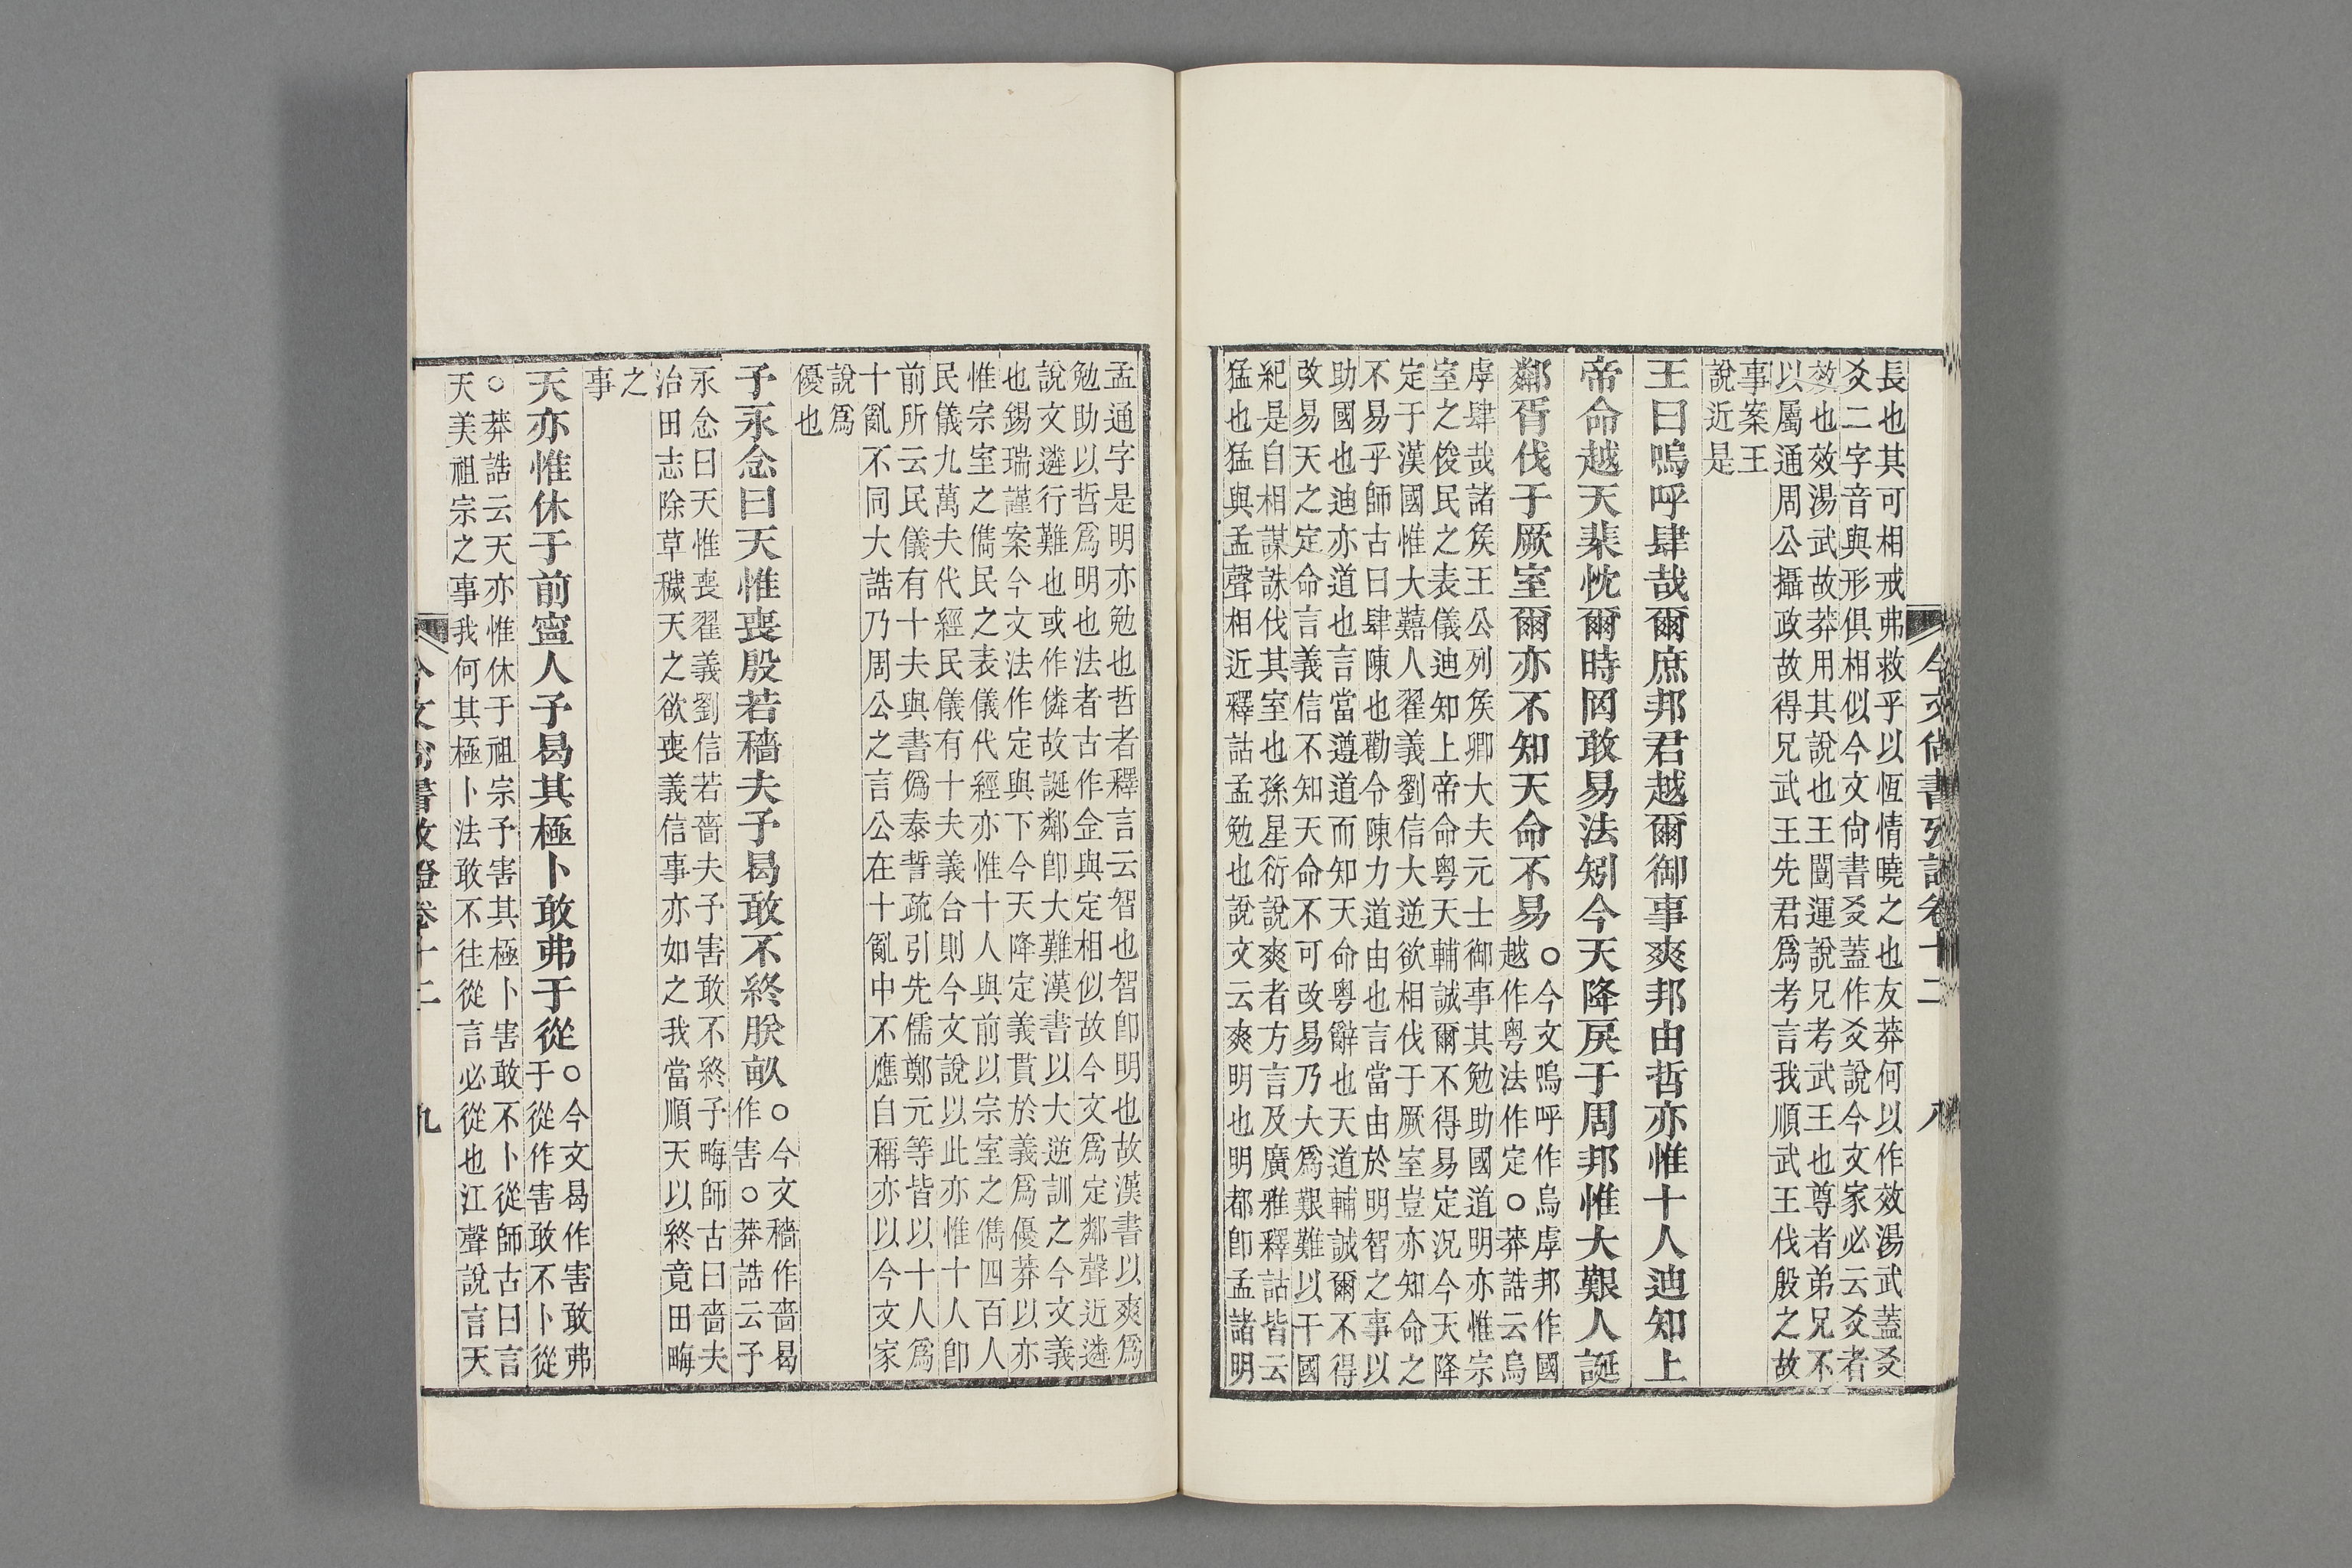 今文尚書攷證卷十二
八
長也其可相戒弗救乎以恆情曉之也友莽何以作效湯武蓋爻
爻二字音與形俱相似今文尙書爻蓋作爻說今文家必云爻者
效也效湯武故莽用其說也王闓運說兄考武王也尊者弟兄不
以屬通周公攝政故得兄武王先君爲考言我順武王伐殷之故
事案王
說近是
王曰嗚呼肆哉爾庶邦君越爾御事爽邦由哲亦惟十人迪知上
帝命越天棐忱爾時罔敢易法矧今天降戾于周邦惟大艱人誕
鄰胥伐于厥室爾亦不知天命不易
○今文嗚呼作烏虖邦作國
越作粵法作定○莽誥云烏
虖肆哉諸矦王公列矦卿大夫元士御事其勉助國道明亦惟宗
室之俊民之表儀迪知上帝命粵天輔誠爾不得易定況今天降
定于漢國惟大囏人翟義劉信大逆欲相伐于厥室豈亦知命之
不易乎師古曰肆陳也勸令陳力道由也言當由於明智之事以
助國也迪亦道也言當遵道而知天命粵辭也天道輔誠爾不得
改易天之定命言義信不知天命不可改易乃大爲艱難以干國
紀是自相謀誅伐其室也孫星衍說爽者方言及廣雅釋詁皆云
猛也猛與孟聲相近釋詁孟勉也說文云爽明也明都卽孟諸明
孟通字是明亦勉也哲者釋言云智也智卽明也故漢書以爽爲
勉助以哲爲明也法者古作佱與定相似故今文爲定鄰聲近遴
說文遴行難也或作僯故誕鄰卽大難漢書以大逆訓之今文義
也錫瑞謹案今文法作定與下今天降定義貫於義爲優莽以亦
惟宗室之儁民之表儀代經亦惟十人與前以宗室之儁四百人
民儀九萬夫代經民儀有十夫義合則今文說以此亦惟十人卽
前所云民儀有十夫與書僞泰誓疏引先儒鄭元等皆以十人爲
十亂不同大誥乃周公之言公在十亂中不應自稱亦以今文家
說爲
優也
予永念曰天惟喪殷若穡夫予曷敢不終朕畝
○今文穡作嗇曷
作害○莽誥云予
永念曰天惟喪翟義劉信若嗇夫予害敢不終予晦師古曰嗇夫
治田志除草穢天之欲喪義信事亦如之我當順天以終竟田晦
之
事
天亦惟休于前寧人予曷其極卜敢弗于從
○今文曷作害敢弗
于從作害敢不卜從
○莽誥云天亦惟休于祖宗予害其極卜害敢不卜從師古曰言
天美祖宗之事我何其極卜法敢不往從言必從也江聲說言天
今文尚書攷證卷十二
九